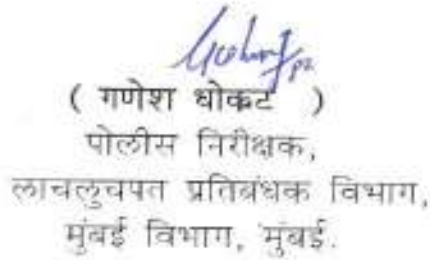 ( गणेश धोकट )
पोलीस निरीक्षक,
लाचलुचपत प्रतिबंधक विभाग,
मुंबई विभाग, मुंबई.